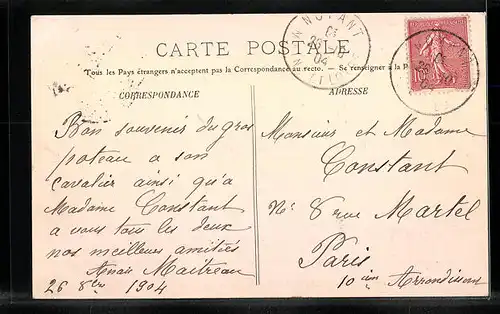 NOYANT
CARTE POSTALE
Tous les Pays étrangers n'acceptent pas la Correspondance au recto. — Se renseigner à la
CORRESPONDANCE
ADRESSE
Bon souvenir du gros
poteau a son
cavalier ainsi qu'a
Madame Constant
a vous tous les deux
nos meilleurs amitiés
Anais Maitreau
26 8bre 1904
Monsieur et Madame
Constant
N° 8 rue Martel
Paris
10 iem Arrondissem